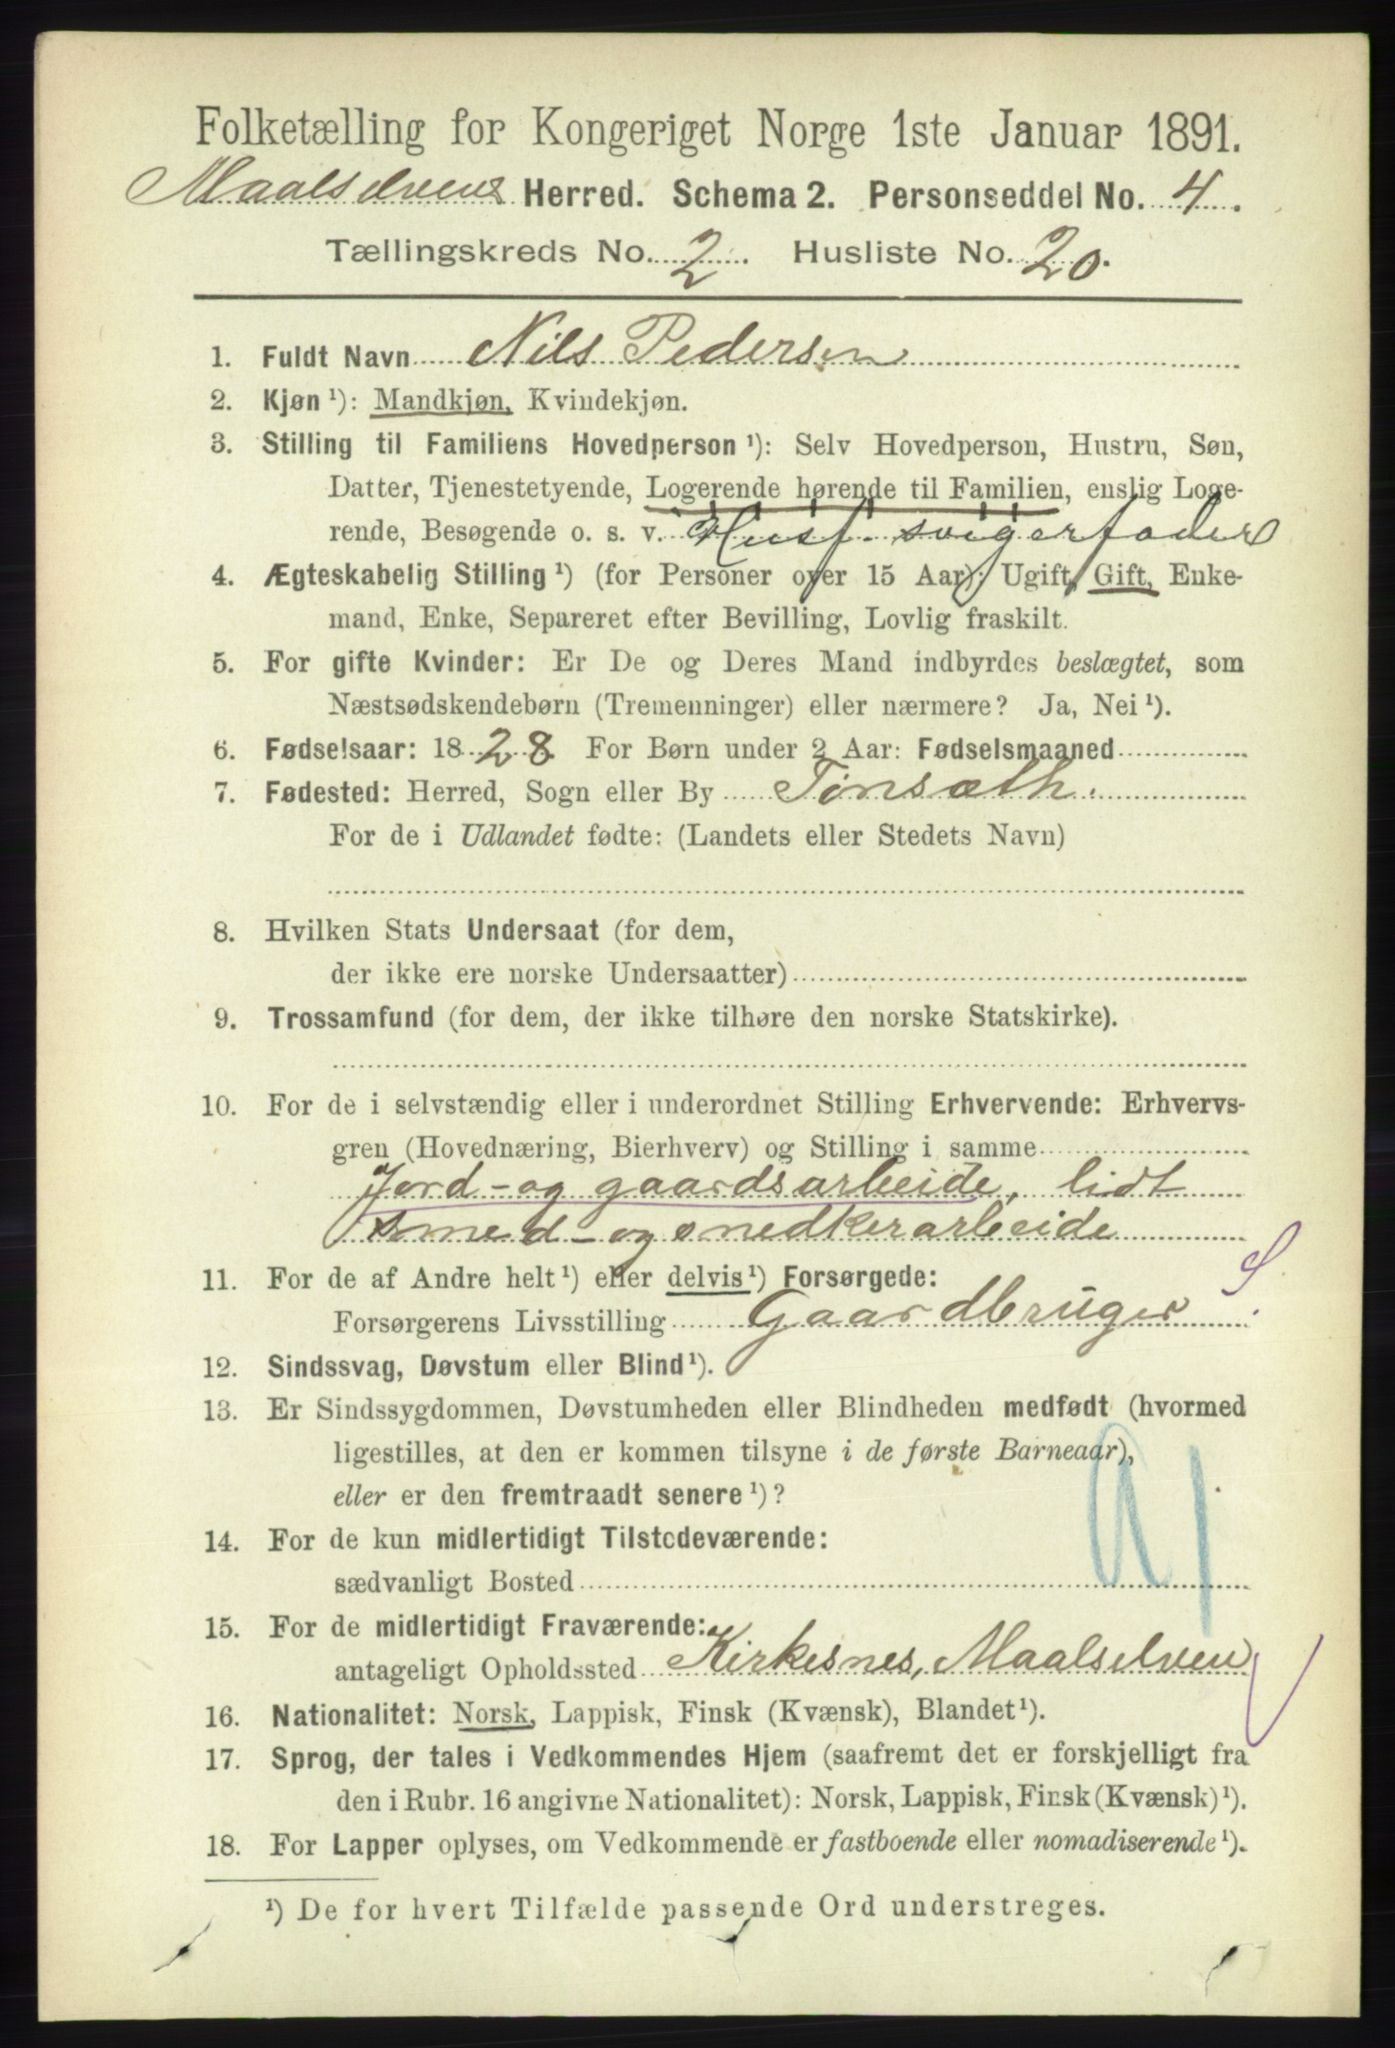 Folketælling for Kongeriget Norge 1ste Januar 1891.
Maalselvens Herred. Schema 2. Personseddel No. 4.
Tællingskreds No. 2. Husliste No. 20.
1. Fuldt Navn Nils Pedersen
2. Kjøn ¹): Mandkjøn, Kvindekjøn.
3. Stilling til Familiens Hovedperson ¹): Selv Hovedperson, Hustru, Søn,
Datter, Tjenestetyende, Logerende hørende til Familien, enslig Loge-
rende, Besøgende o. s. v. Husf. svigerfader
4. Ægteskabelig Stilling ¹) (for Personer over 15 Aar): Ugift, Gift, Enke-
mand, Enke, Separeret efter Bevilling, Lovlig fraskilt.
5. For gifte Kvinder: Er De og Deres Mand indbyrdes beslægtet, som
Næstsødskendebørn (Tremenninger) eller nærmere? Ja, Nei ¹).
6. Fødselsaar: 1828 For Børn under 2 Aar: Fødselsmaaned
7. Fødested: Herred, Sogn eller By Tønsæth.
For de i Udlandet fødte: (Landets eller Stedets Navn)
8. Hvilken Stats Undersaat (for dem,
der ikke ere norske Undersaatter)
9. Trossamfund (for dem, der ikke tilhøre den norske Statskirke).
10. For de i selvstændig eller i underordnet Stilling Erhvervende: Erhvervs-
gren (Hovednæring, Bierhverv) og Stilling i samme
Jord- og gaardsarbeide, lidt
smed- og snedkerarbeide
11. For de af Andre helt ¹) eller delvis ¹) Forsørgede:
S.
Forsørgerens Livsstilling Gaardbruger
12. Sindssvag, Døvstum eller Blind ¹).
13. Er Sindssygdommen, Døvstumheden eller Blindheden medfødt (hvormed
ligestilles, at den er kommen tilsyne i de første Barneaar),
eller er den fremtraadt senere ¹)?
14. For de kun midlertidigt Tilstedeværende:
sædvanligt Bosted
15. For de midlertidigt Fraværende:
antageligt Opholdssted Kirkesnes, Maalselven
16. Nationalitet: Norsk, Lappisk, Finsk (Kvænsk), Blandet ¹).
17. Sprog, der tales i Vedkommendes Hjem (saafremt det er forskjelligt fra
den i Rubr. 16 angivne Nationalitet): Norsk, Lappisk, Finsk (Kvænsk) ¹).
18. For Lapper oplyses, om Vedkommende er fastboende eller nomadiserende ¹).
¹) De for hvert Tilfælde passende Ord understreges.